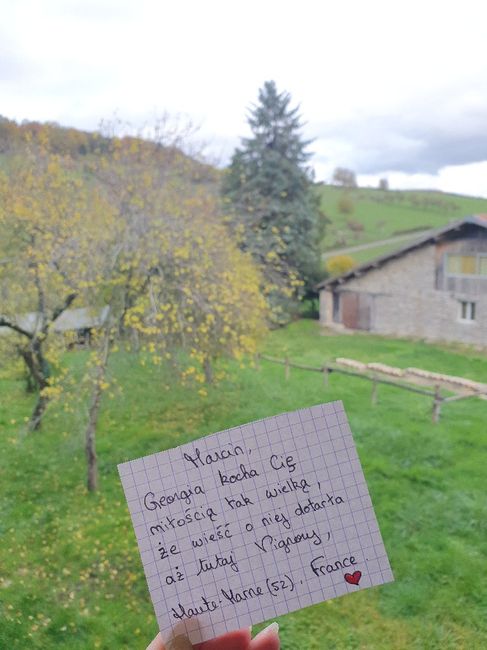 Marcin,
Georgia kocha Cię
miłością tak wielką,
że wieść o niej dotarła
aż tutaj Vignory,
Haute-Marne (52), France